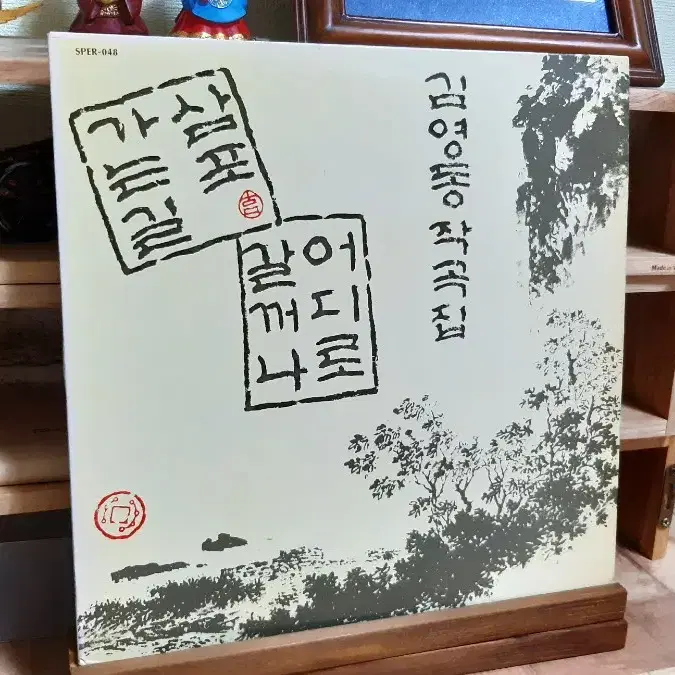 SPER-048
삼포
가는길
어디로
갈꺼나
김영동 작곡집